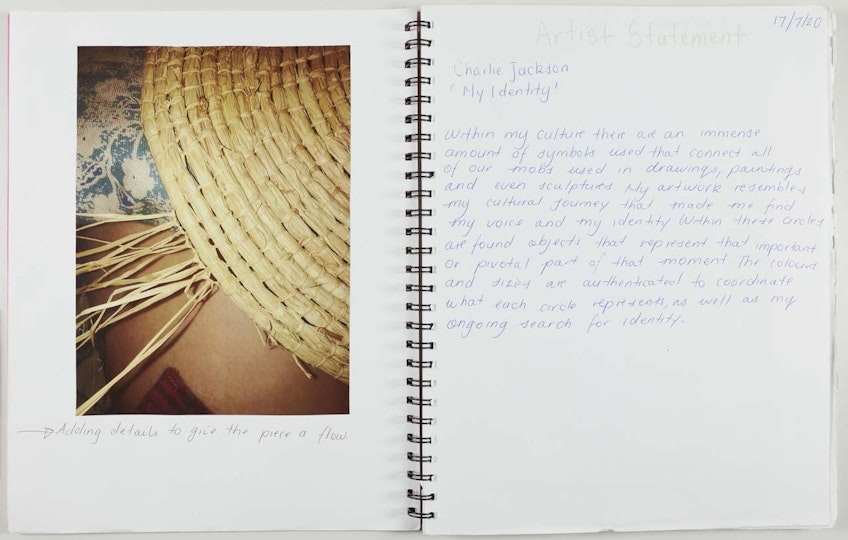 → Adding details to give the piece a flow.
17/7/20
Artist Statement
Charlie Jackson
'My Identity'
Within my culture there are an immense
amount of symbols used that connect all
of our mobs used in drawings, paintings
and even sculptures. My artwork resembles
my cultural journey that made me find
my voice and my identity. Within these circles
are found objects that represent that important
or pivotal part of that moment. The colours
and sizes are authenticated to coordinate
what each circle represents, as well as my
ongoing search for identity.